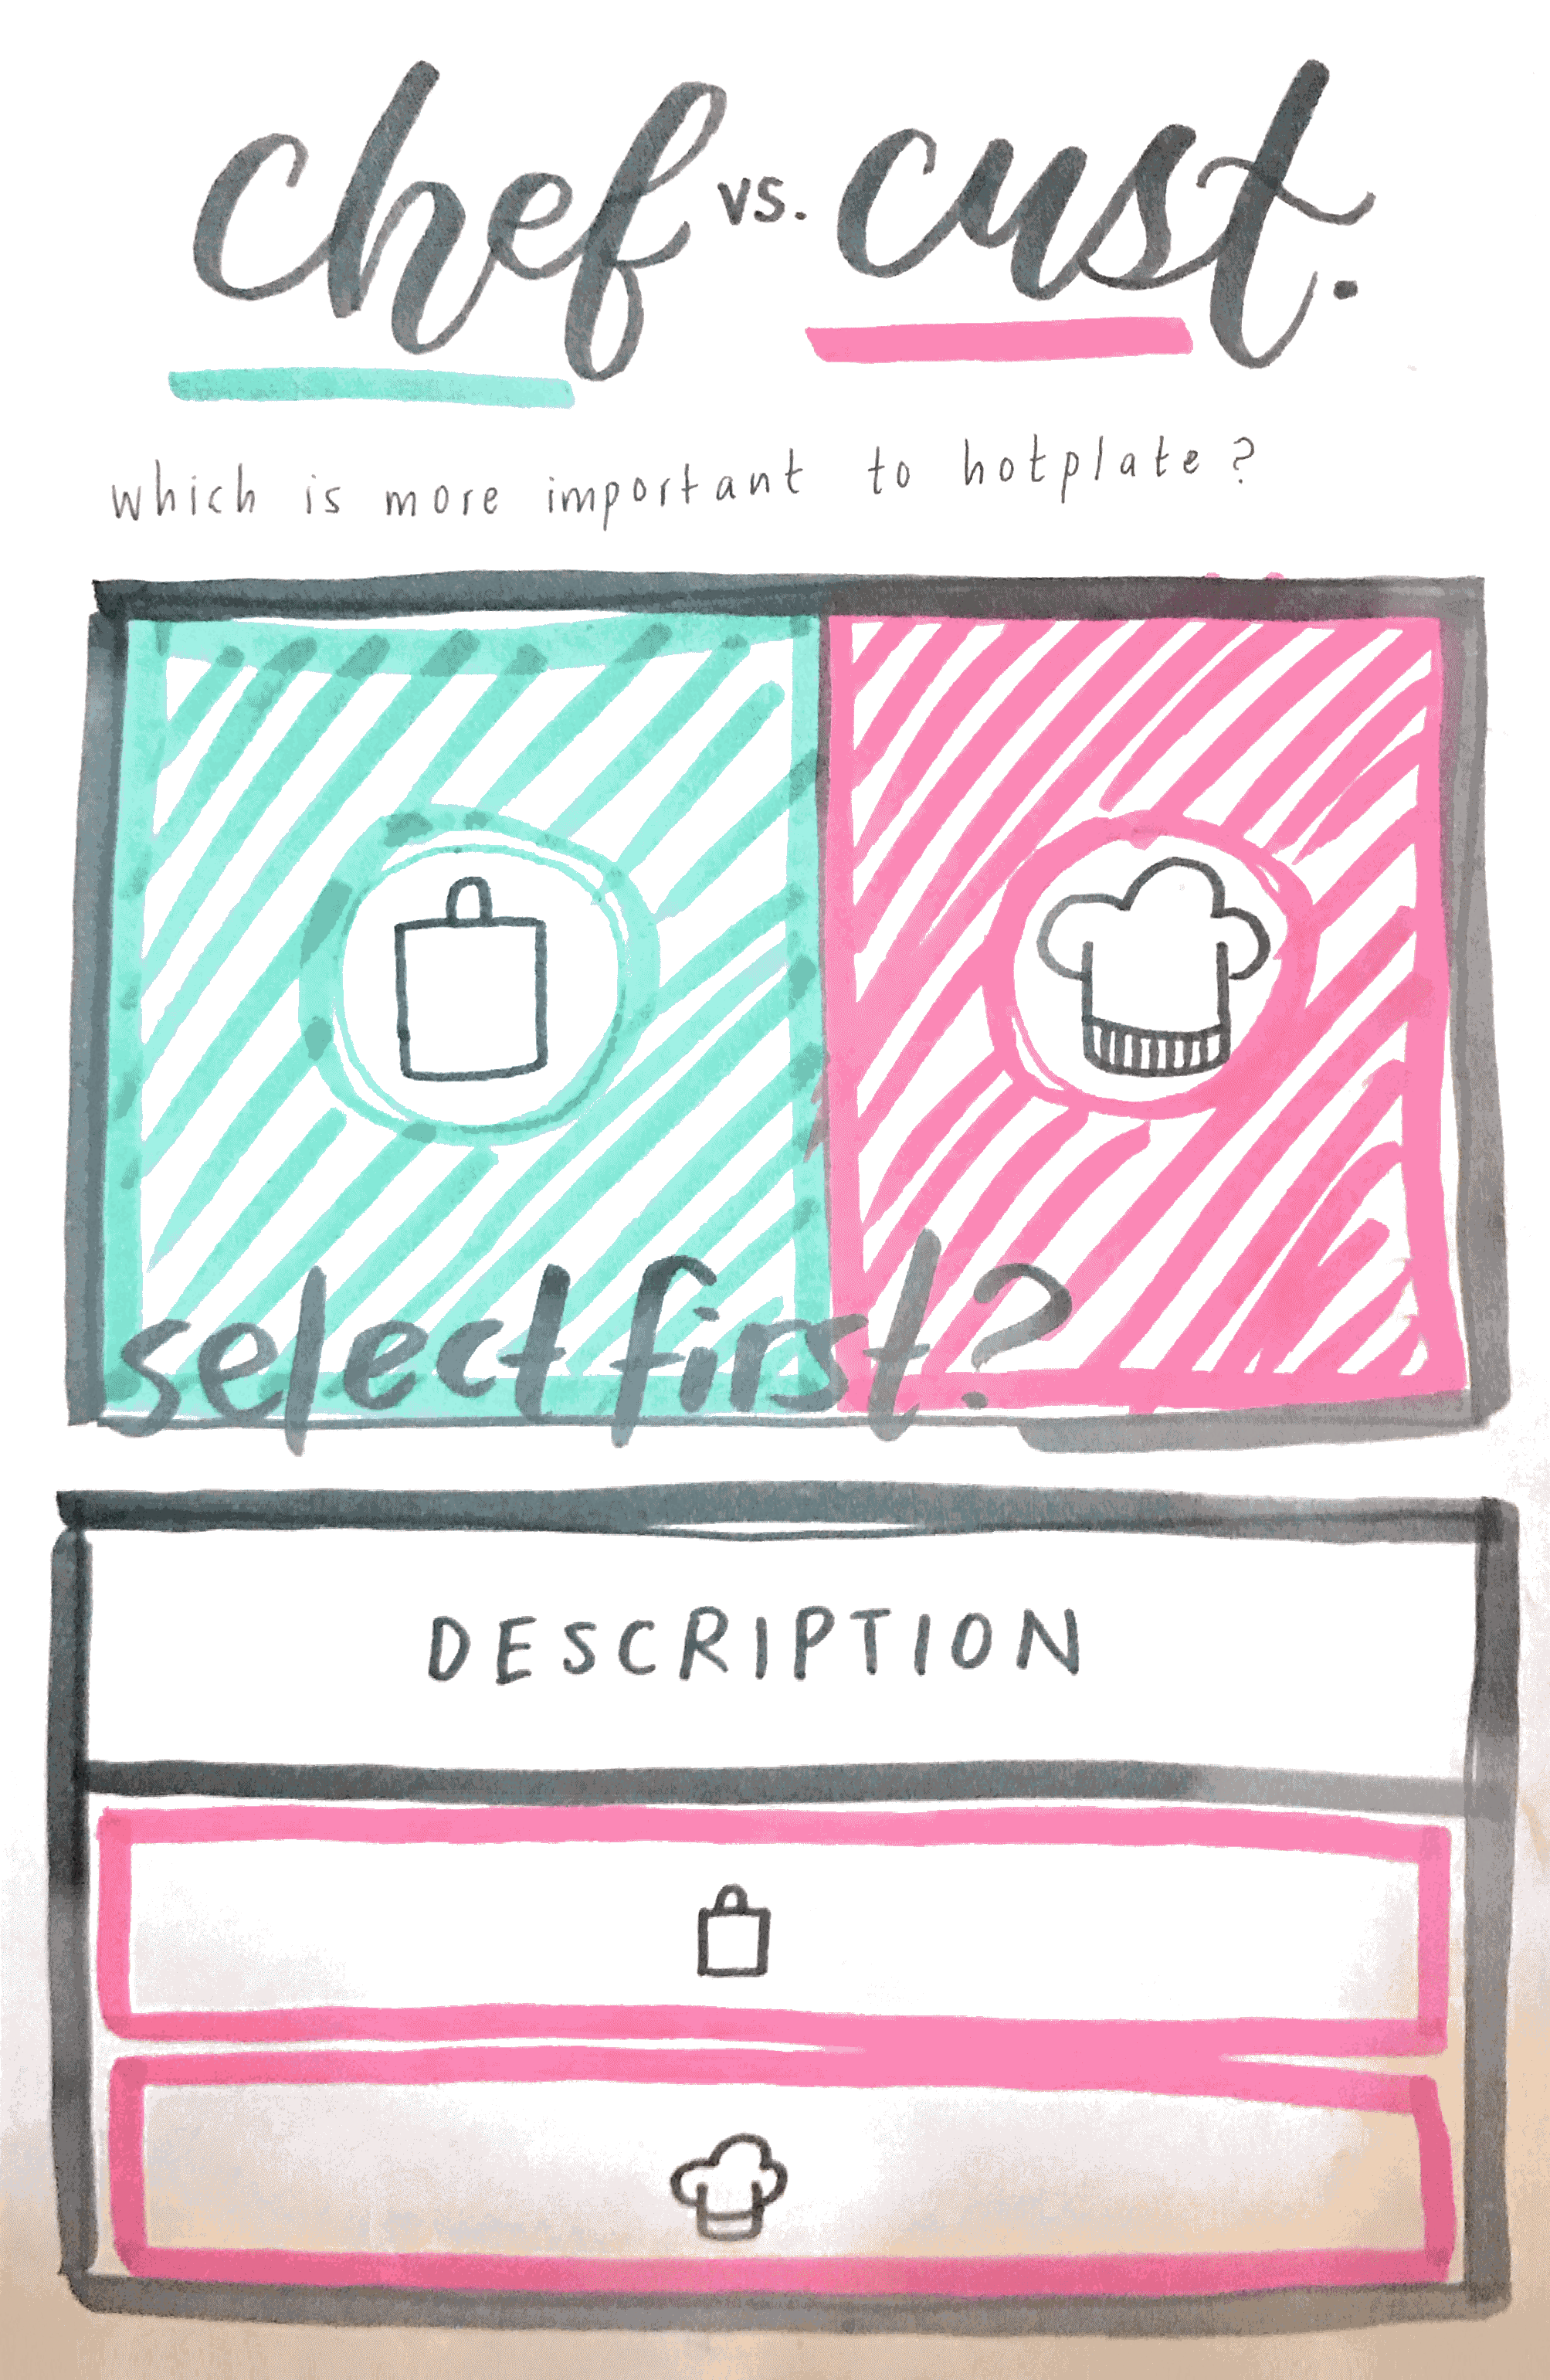 chef vs. cust.
which is more important to hotplate?
select first?
DESCRIPTION